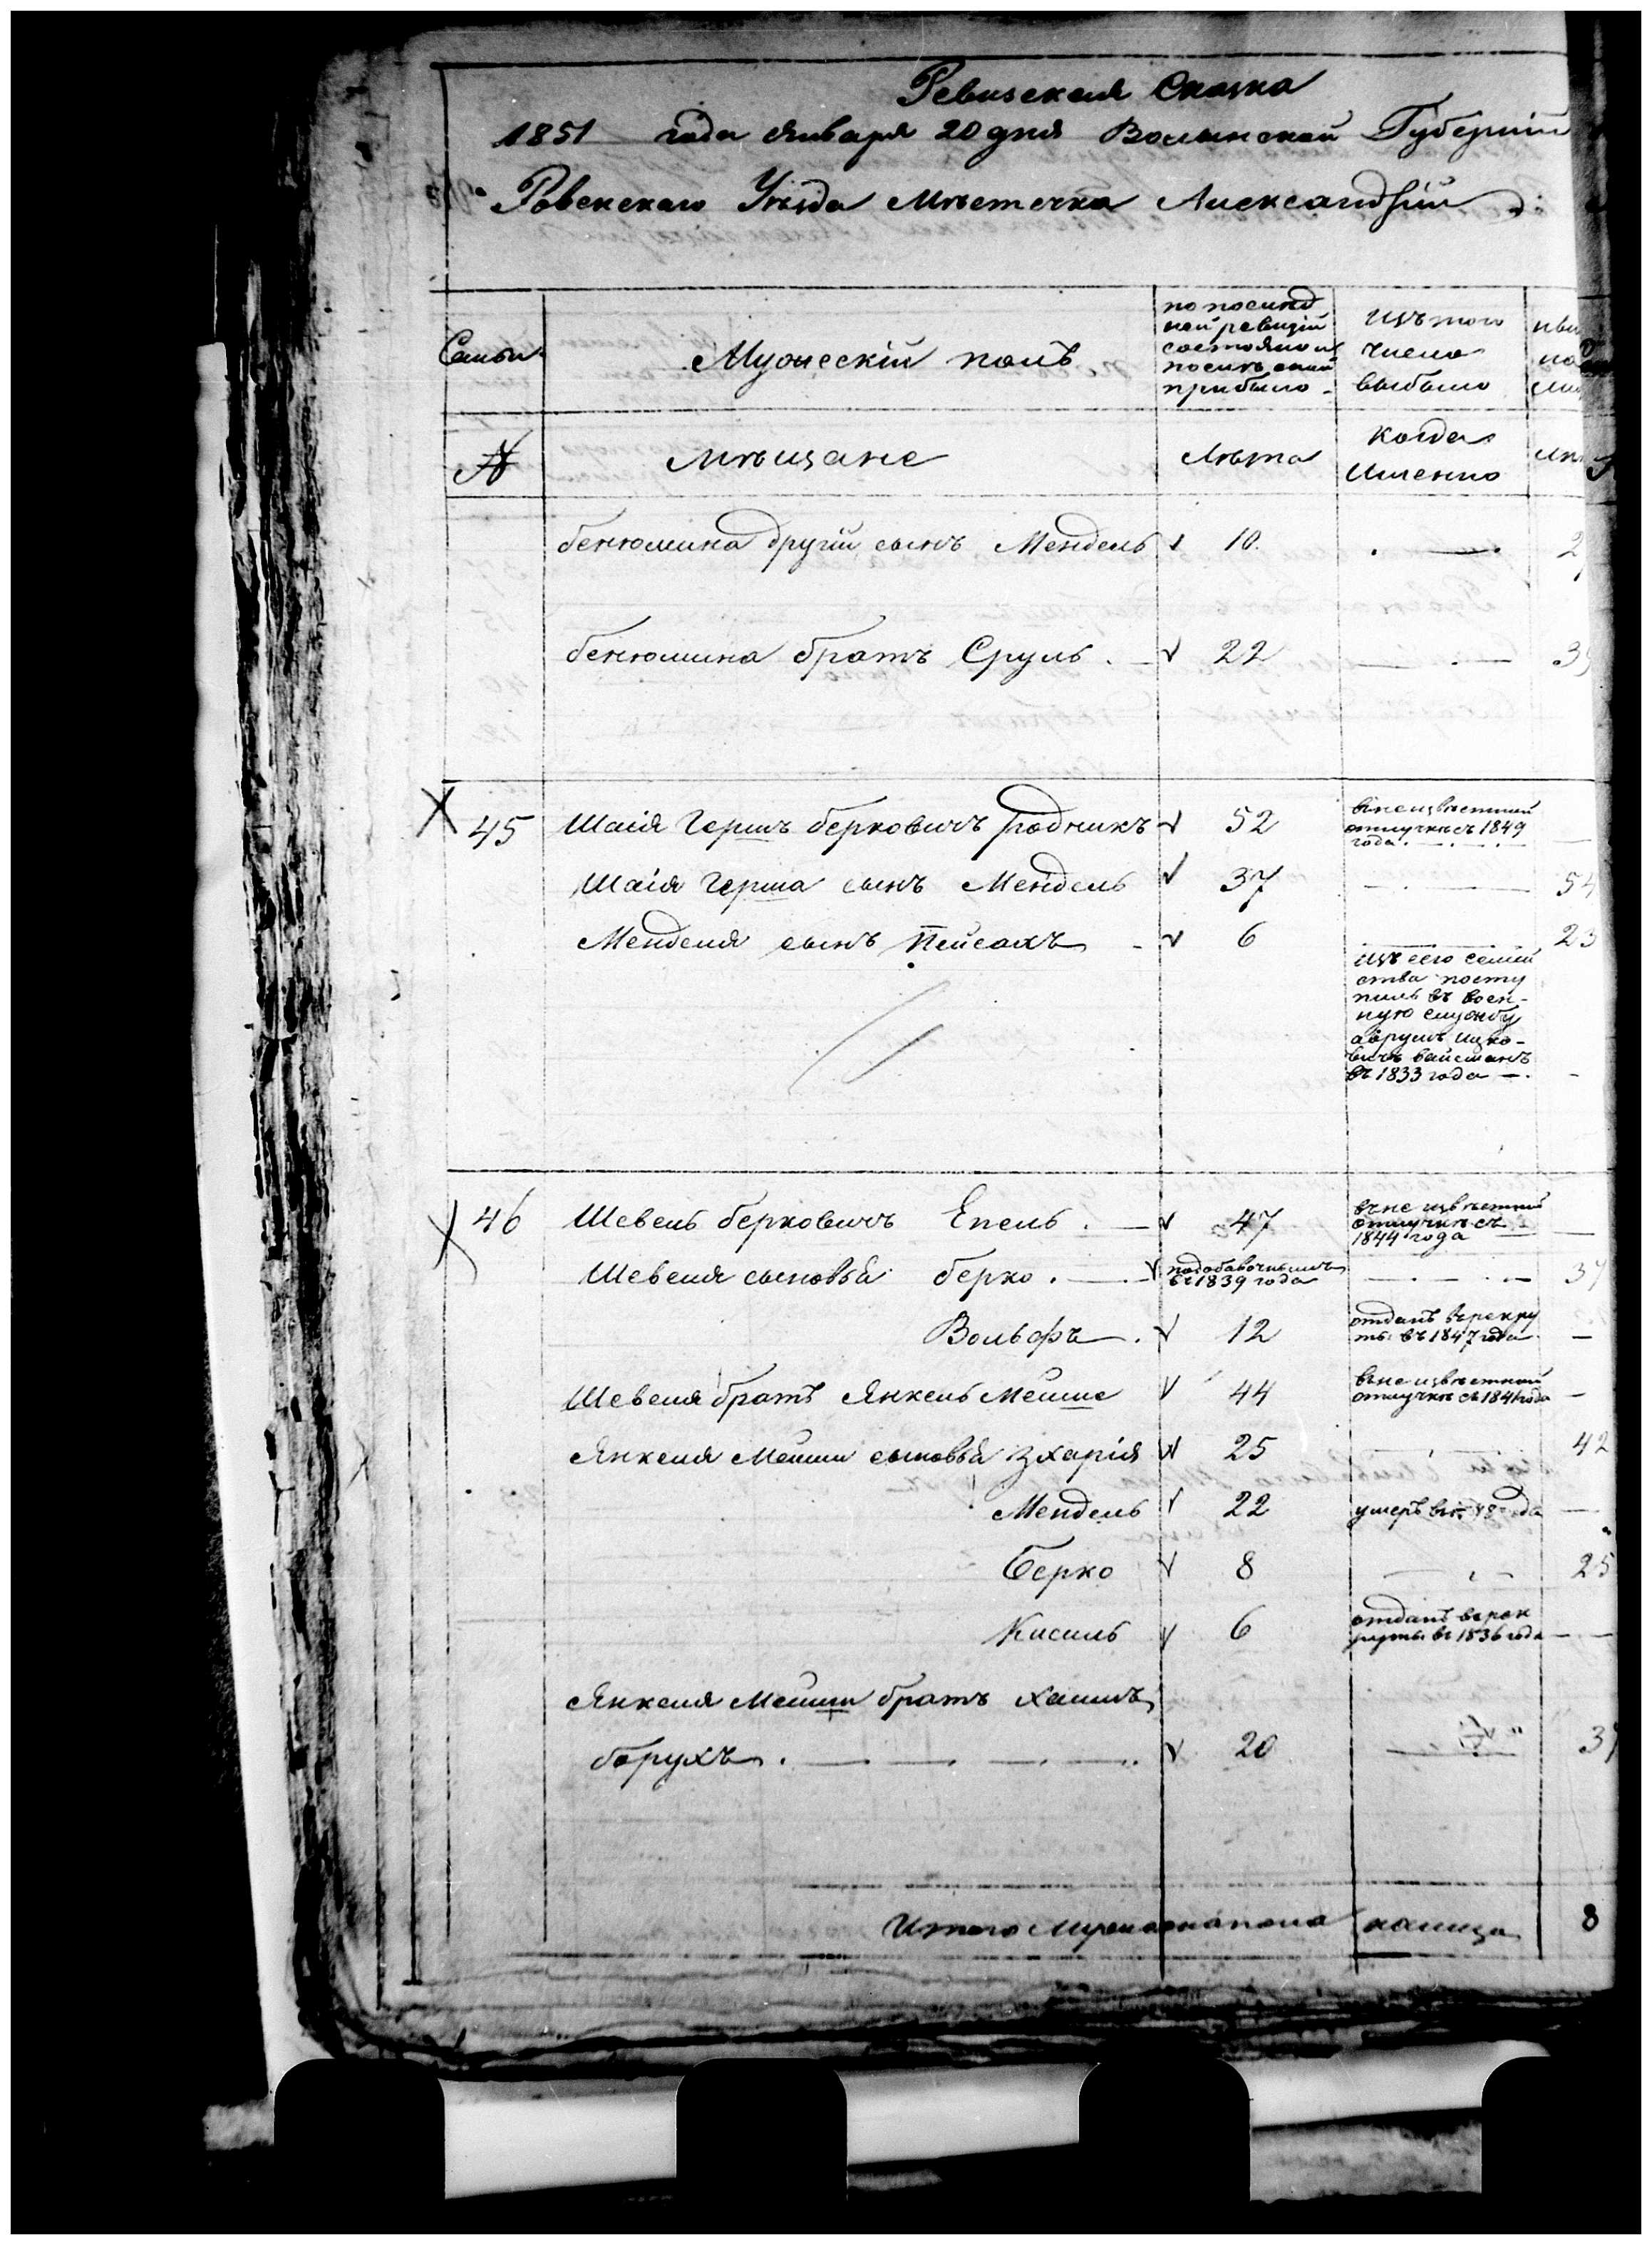 Ревизская Сказка
1851 года Января 20 дня Волынской Губерніи
Ровенскаго Уѣзда Мѣстечка Александріи
Семьи
Мужескій полъ
по послѣд
ней ревизіи
состояло и
послѣ оной
прибыло
Изъ того
числа
выбыло
№
Мѣщане
Лѣта
Когда
Именно
бенюмина другій сынъ Мендель 10 2
бенюмина братъ Сруль 22 3
45 Шаія Гершъ берковичъ родникъ 52
внеизвѣстной
отлучкѣ съ 1849
года
Шаія Герша сынъ Мендель 37 54
Менделя сынъ Пейсахъ 6 23
изъ сего семей
ства посту
пилъ въ воен-
ную службу
абрумъ ицко-
вичъ вайсманъ
въ 1833 года
46 Шевель берковичъ Епель 47
въне извѣстной
отлучкѣ съ
1844 года
Шевеля сыновья берко
подобавочнымъ
въ 1839 года
3
Вольфъ 12
отданъ врекру
ты въ 1847 года
Шевеля братъ Янкель Мейше 44
вне извѣстной
отлучкѣ съ 1841 года
Янкеля Мейши сыновья Зхарія 25 42
Мендель 22 умеръ
Берко 8 25
Кисиль 6
отданъ врек
руты въ 1836 года
Янкеля Мейши братъ Хаимъ
борухъ 20 3
Итого Мужеска пола налицо 8